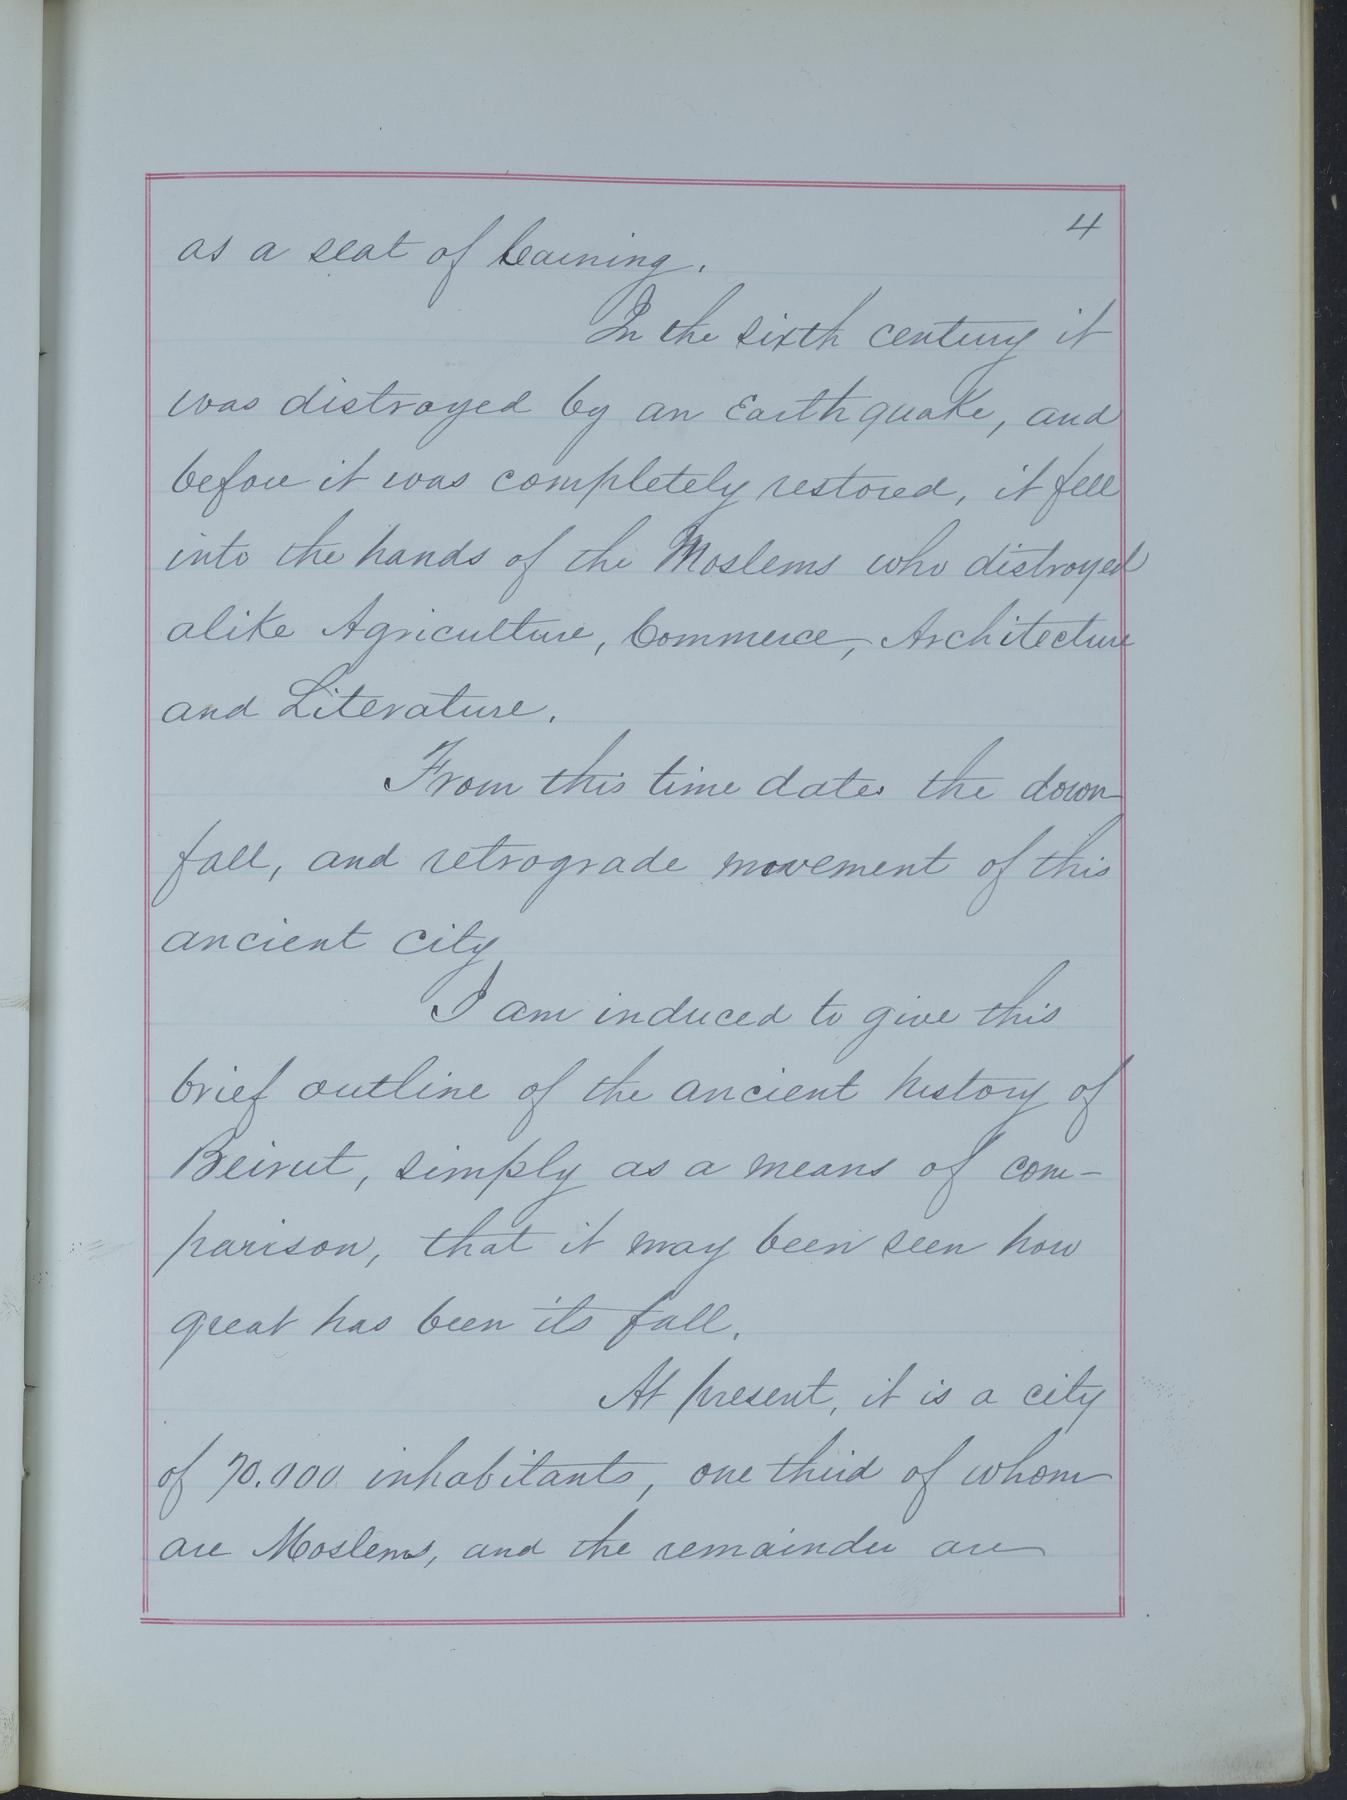 4
as a seat of learning.
In the sixth century it
was distroyed by an Earthquake, and
before it was completely restored, it fell
into the hands of the Moslems who distroyed
alike Agriculture, Commerce, Architecture
and Literature.
From this time dates the down
fall, and retrograde movement of this
ancient city
I am induced to give this
brief outline of the ancient history of
Beirut, simply as a means of com-
parison, that it may been seen how
great has been its fall.
At present, it is a city
of 70.000 inhabitants, one third of whom
are Moslems, and the remainder are